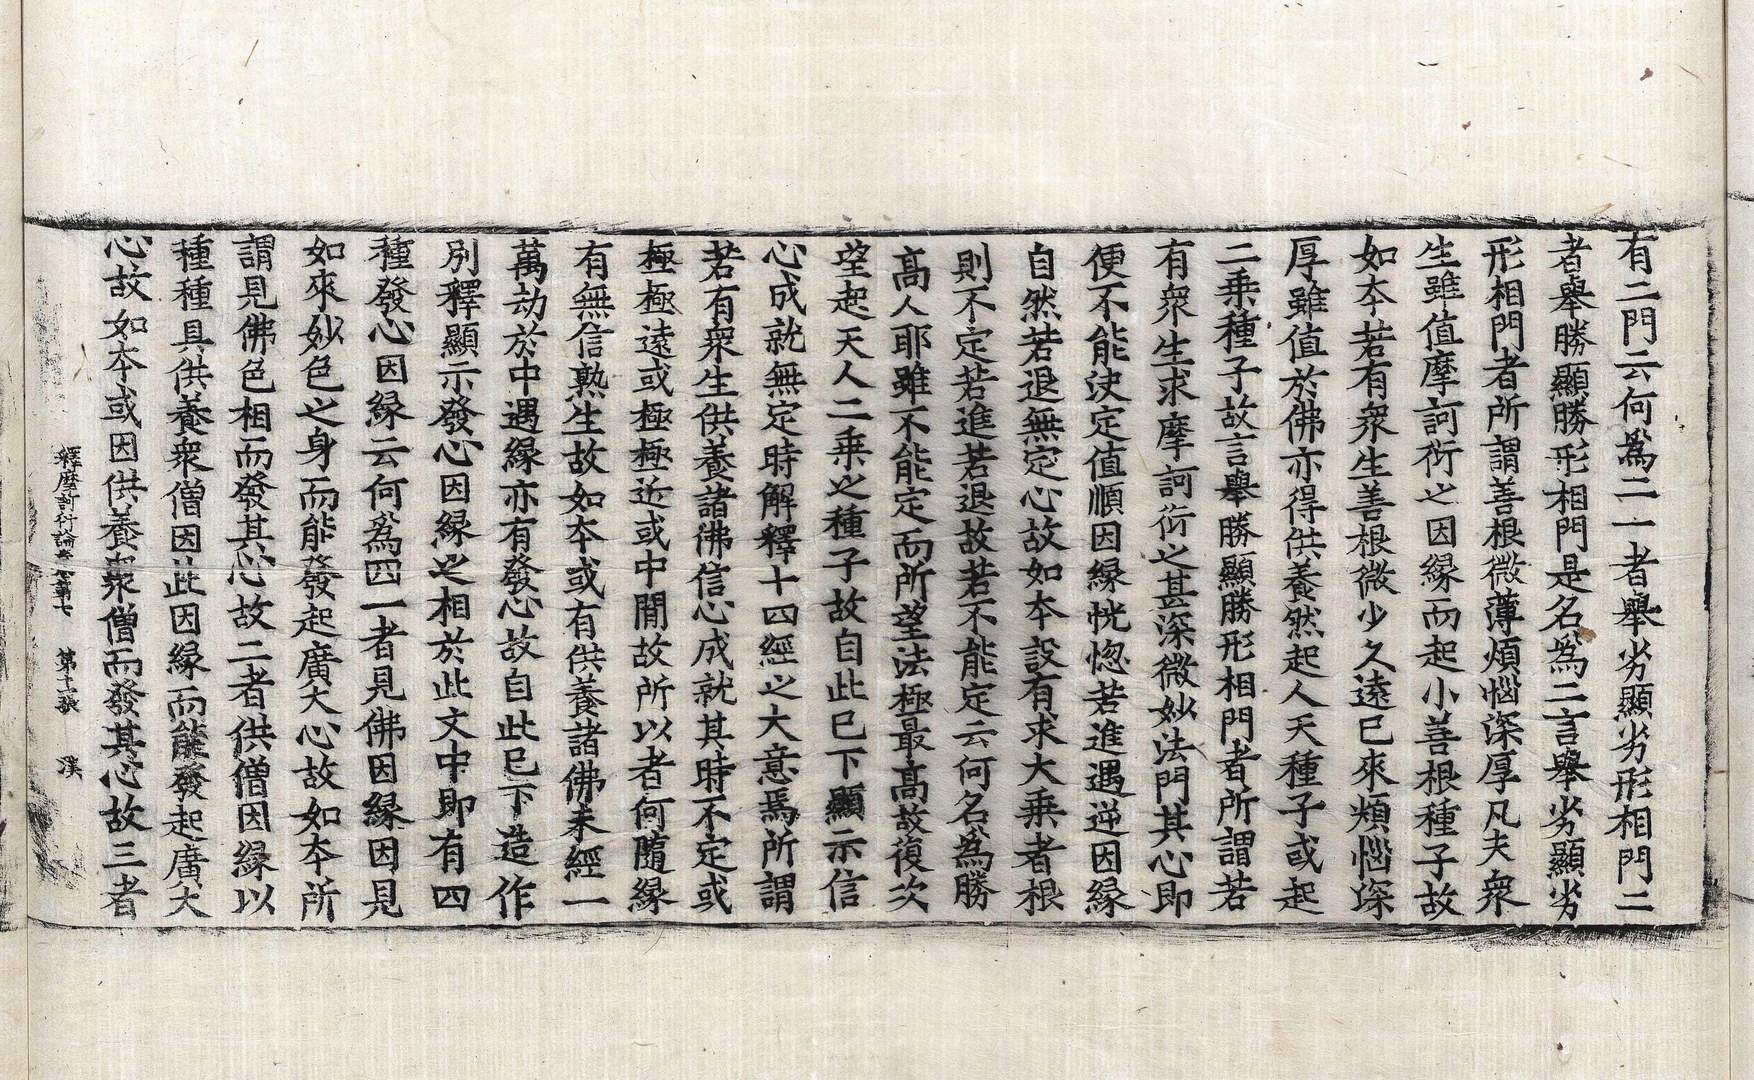 有二門云何為二一者舉劣顯劣形相門二
者舉勝顯勝形相門是名為二言舉劣顯劣
形相門者所謂善根微薄煩惱深厚凡夫衆
生雖值摩訶衍之因緣而起小善根種子故
如本若有衆生善根微少久遠已來煩惱深
厚雖值於佛亦得供養然起人天種子或起
二乗種子故言舉勝顯勝形相門者所謂若
有衆生求摩訶衍之甚深微妙法門其心即
便不能決定值順因緣恍惚若進遇逆因緣
自然若退無定心故如本設有求大乗者根
則不定若進若退故若不能定云何名為勝
高人耶雖不能定而所望法極最高故復次
望起天人二乗之種子故自此已下顯示信
心成就無定時解釋十四經之大意焉所謂
若有衆生供養諸佛信心成就其時不定或
極極遠或極極近或中閒故所以者何隨緣
有無信熟生故如本或有供養諸佛未經一
萬劫於中遇緣亦有發心故自此已下造作
別釋顯示發心因緣之相於此文中即有四
種發心因緣云何為四一者見佛因緣因見
如來妙色之身而能發起廣大心故如本所
謂見佛色相而發其心故二者供僧因緣以
種種具供養衆僧因此因緣而能發起廣大
心故如本或因供養衆僧而發其心故三者
釋摩訶衍論卷第七 第十二張 漢